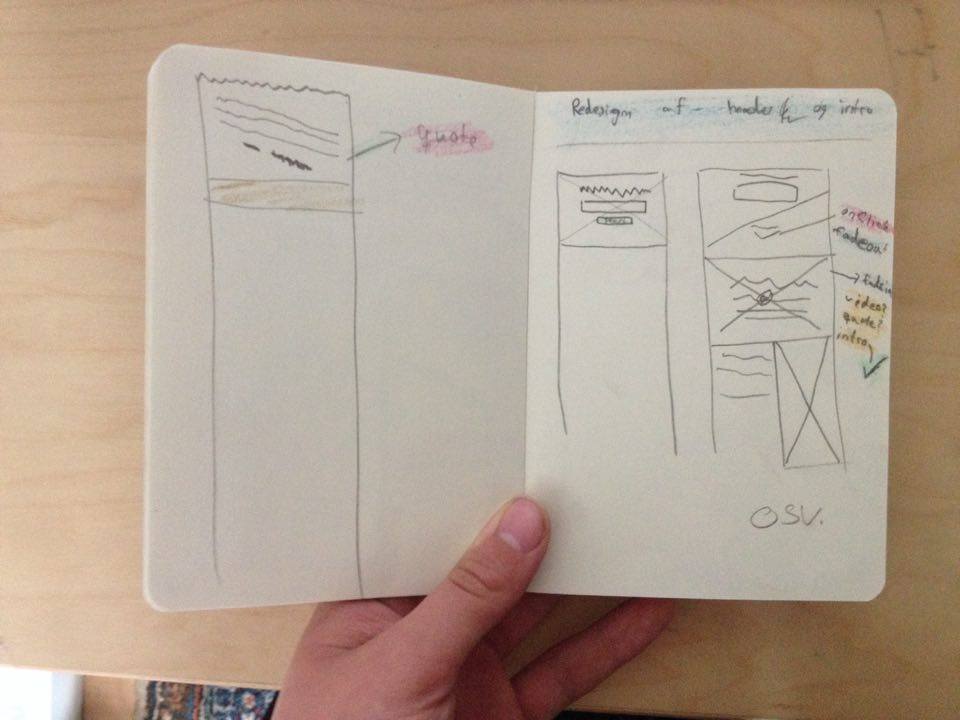 quote
Redesign af header og intro
onclick
fadeout
fadein
video?
quote?
intro
OSV.